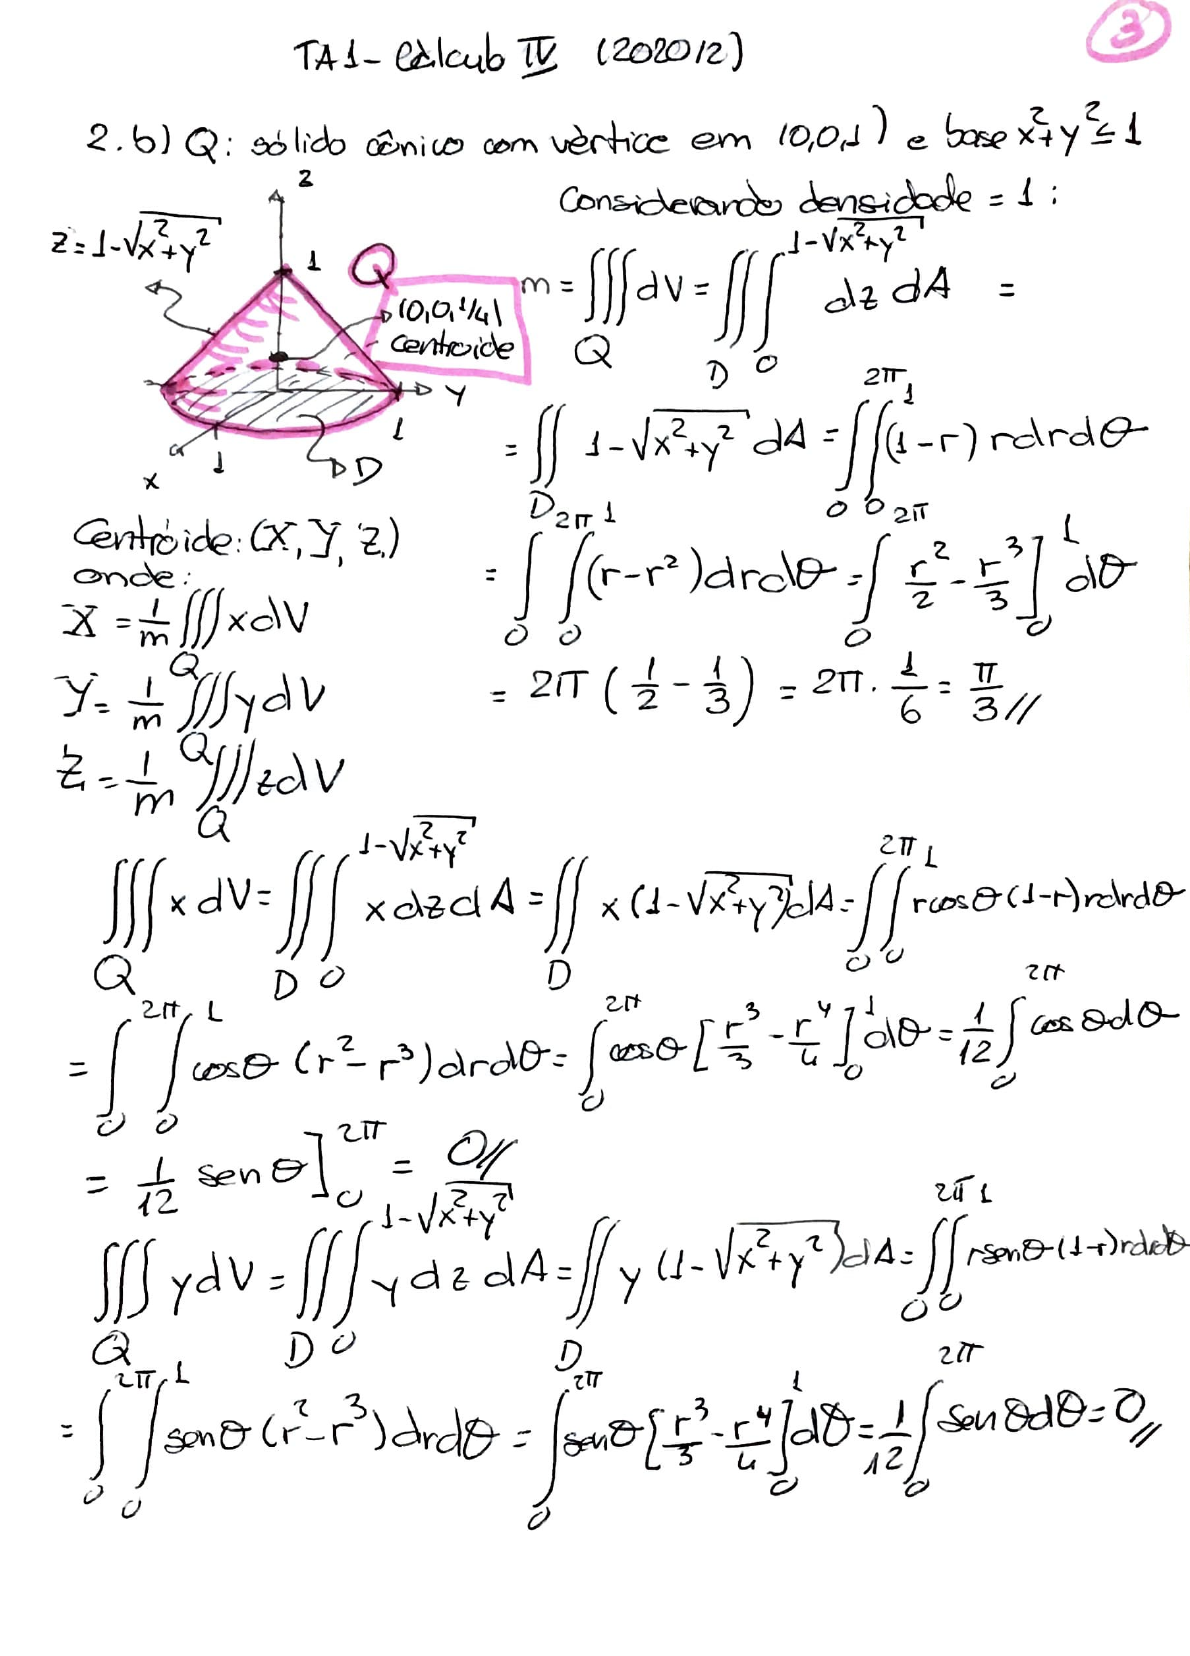 3
TA1 - Cálculo IV (2020/2)
2.b) Q: sólido cônico com vèrtice em (0,0,1) e base x²+y²≤1
z
z=1-√(x²+y²)
1
Q
(0,0,1/4)
centroide
y
1
x
1
D
Considerando densidade = 1:
m = ∭_Q dV = ∬_D ∫_0^{1-√(x²+y²)} dz dA =
= ∬_D 1-√(x²+y²) dA = ∫_0^{2π} ∫_0^1 (1-r) r dr dθ
= ∫_0^{2π} ∫_0^1 (r-r²) dr dθ = ∫_0^{2π} r²/2 - r³/3 ]_0^1 dθ
= 2π (1/2 - 1/3) = 2π · 1/6 = π/3 //
Centróide: (X, Y, Z)
onde:
X = 1/m ∭_Q x dV
Y = 1/m ∭_Q y dV
Z = 1/m ∭_Q z dV
∭_Q x dV = ∬_D ∫_0^{1-√(x²+y²)} x dz dA = ∬_D x (1-√(x²+y²)) dA = ∫_0^{2π} ∫_0^1 r cosθ (1-r) r dr dθ
= ∫_0^{2π} ∫_0^1 cosθ (r²-r³) dr dθ = ∫_0^{2π} cosθ [r³/3 - r⁴/4]_0^1 dθ = 1/12 ∫_0^{2π} cosθ dθ
= 1/12 senθ ]_0^{2π} = 0 //
∭_Q y dV = ∬_D ∫_0^{1-√(x²+y²)} y dz dA = ∬_D y (1-√(x²+y²)) dA = ∫_0^{2π} ∫_0^1 r senθ (1-r) r dr dθ
= ∫_0^{2π} ∫_0^1 senθ (r²-r³) dr dθ = ∫_0^{2π} senθ [r³/3 - r⁴/4]_0^1 dθ = 1/12 ∫_0^{2π} senθ dθ = 0 //